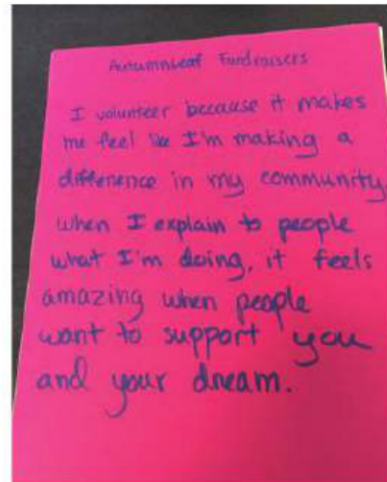 AutumnLeaf Fundraisers
I volunteer because it makes
me feel like I'm making a
difference in my community.
When I explain to people
what I'm doing, it feels
amazing when people
want to support you
and your dream.